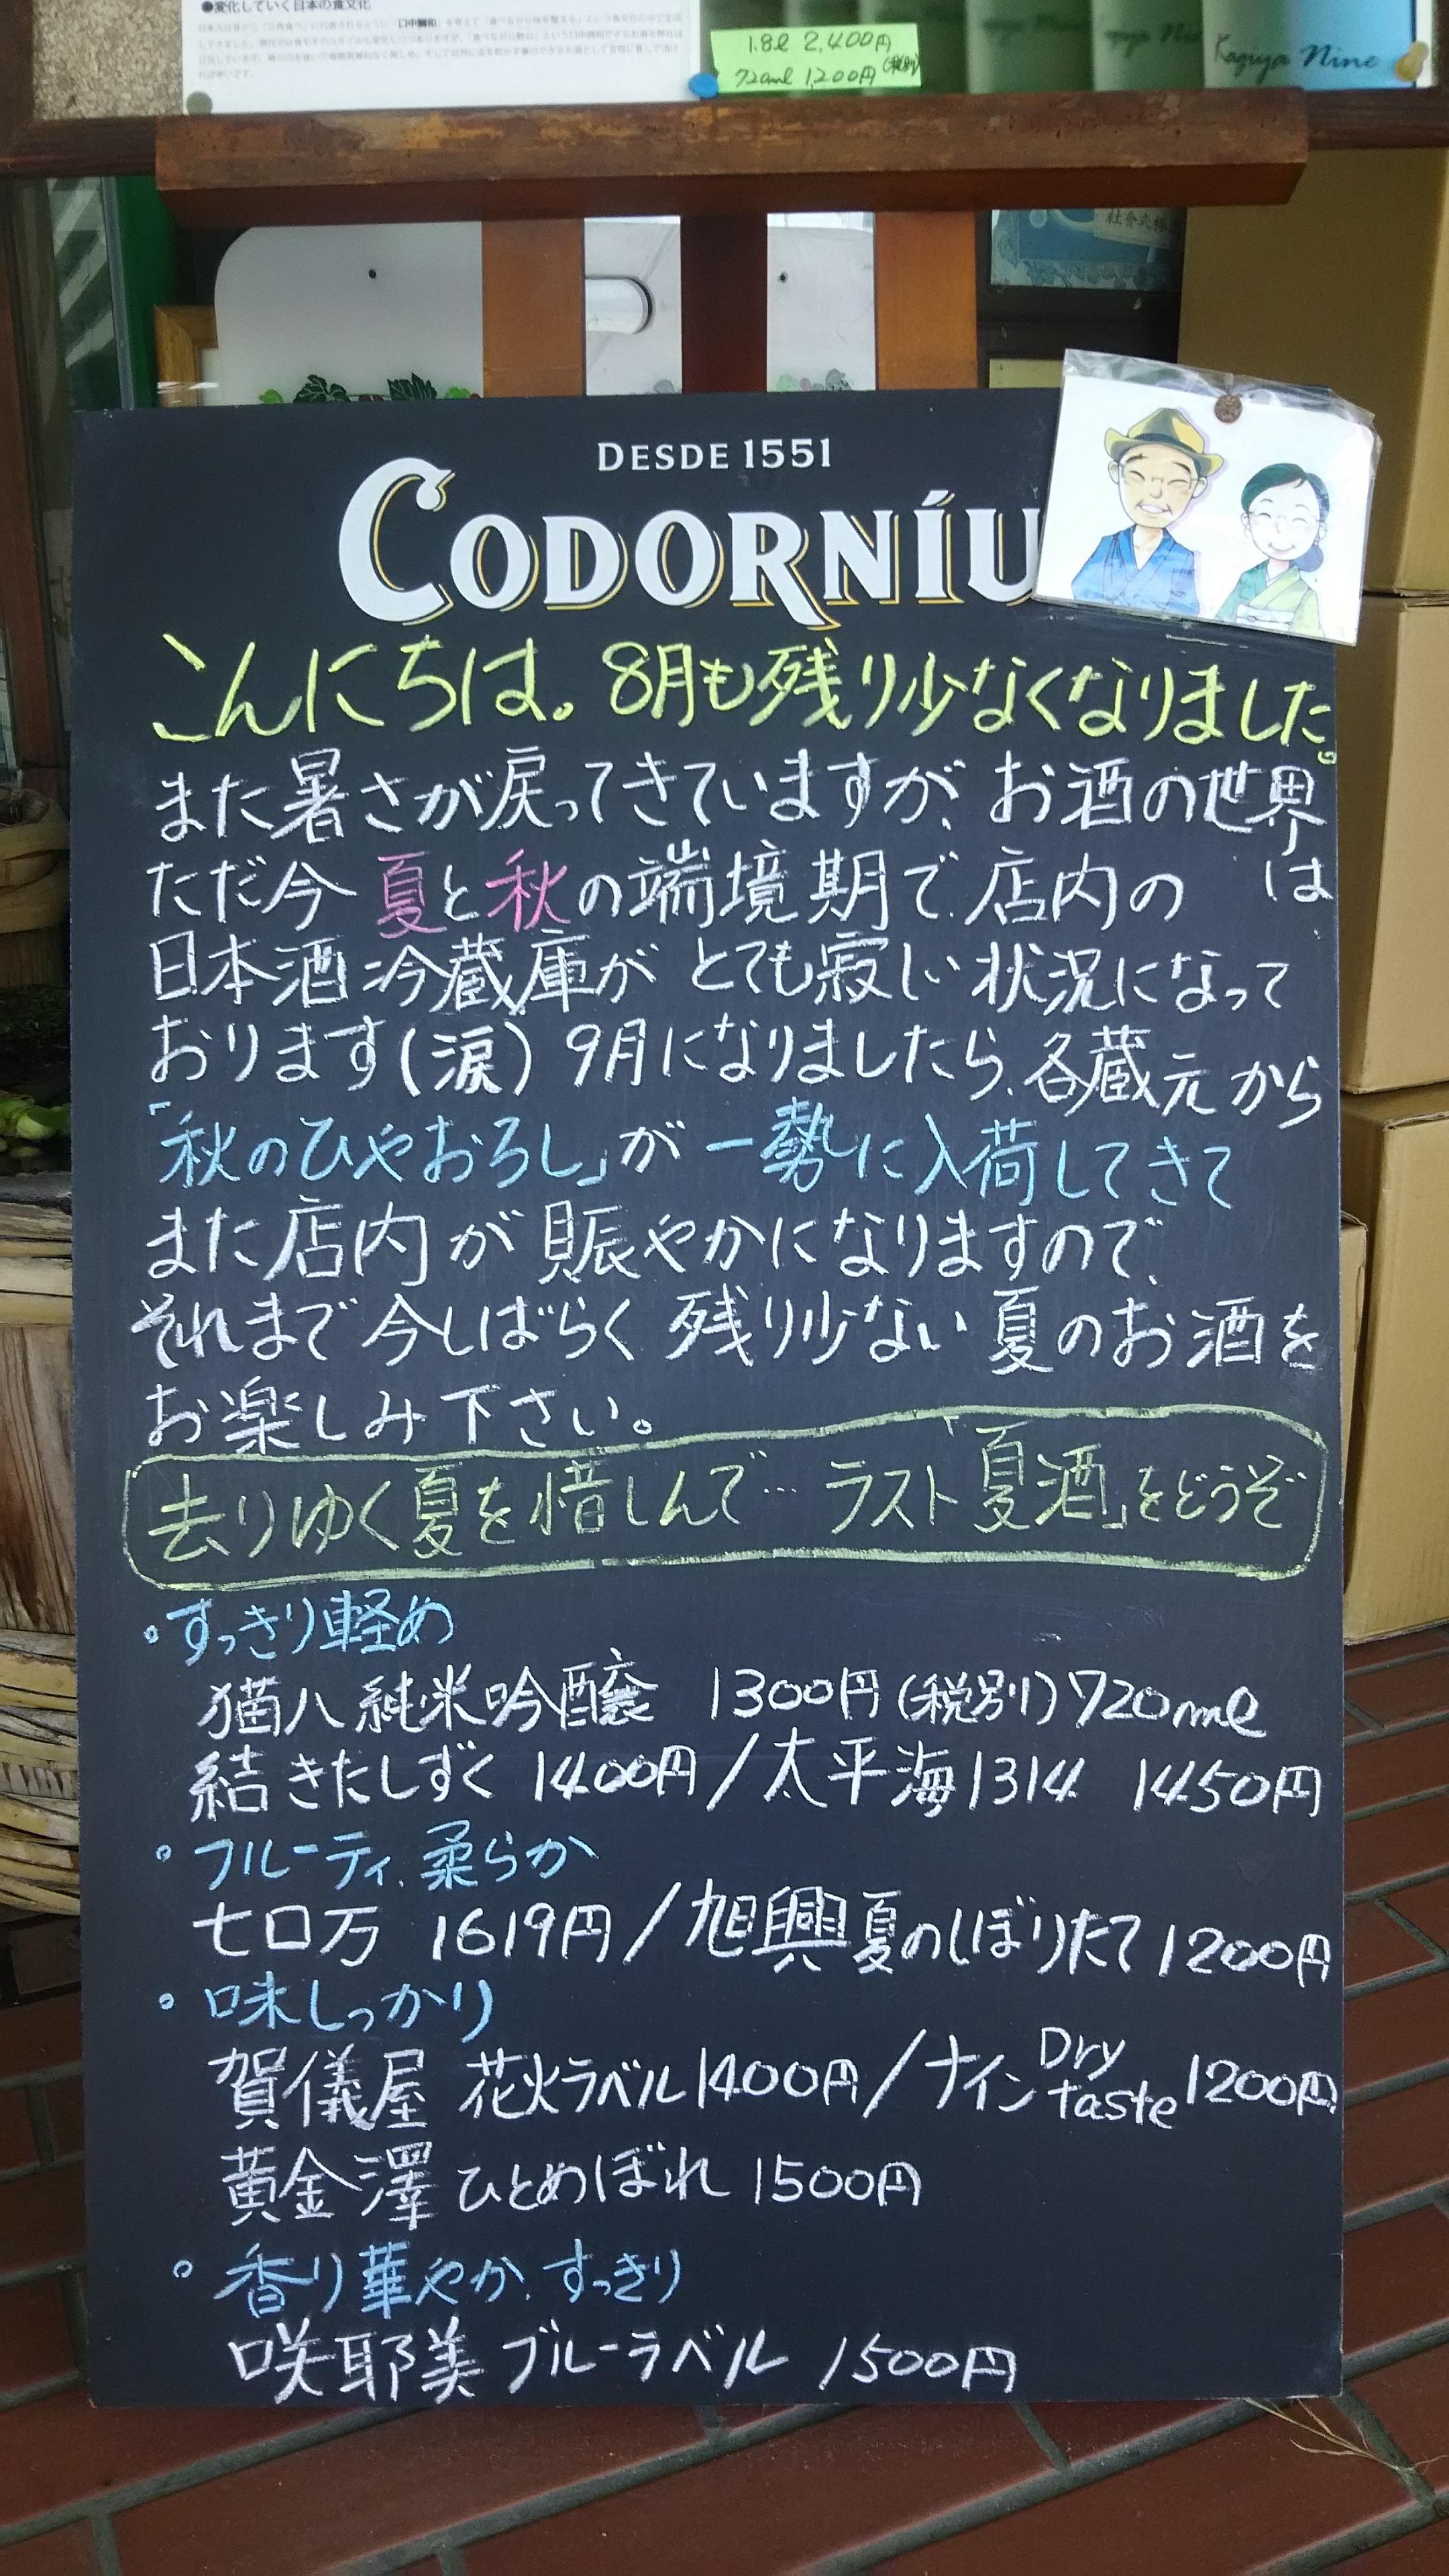 ●変化していく日本の食文化
1.8ℓ 2,400円
720ml 1,200円(税別)
Kagiya Nine
DESDE 1551
CODORNÍU
こんにちは。8月も残り少なくなりました。
また暑さが戻ってきていますが、お酒の世界は
ただ今 夏と秋の端境期で、店内の
日本酒冷蔵庫が とても寂しい状況になって
おります(涙) 9月になりましたら、各蔵元から
「秋のひやおろし」が 一勢に入荷してきて
また店内が賑やかになりますので、
それまで今しばらく 残り少ない夏のお酒を
お楽しみ下さい。
去りゆく夏を惜しんで… ラスト「夏酒」をどうぞ
・すっきり軽め
猫八 純米吟醸 1300円(税別)720mℓ
結 きたしずく 1400円/太平海1314 1450円
・フルーティ、柔らか
七ロ万 1619円/旭興 夏のしぼりたて 1200円
・味しっかり
賀儀屋 花火ラベル1400円/ナイン Dry taste 1200円
黄金澤 ひとめぼれ 1500円
・香り華やか、すっきり
咲耶美 ブルーラベル 1500円